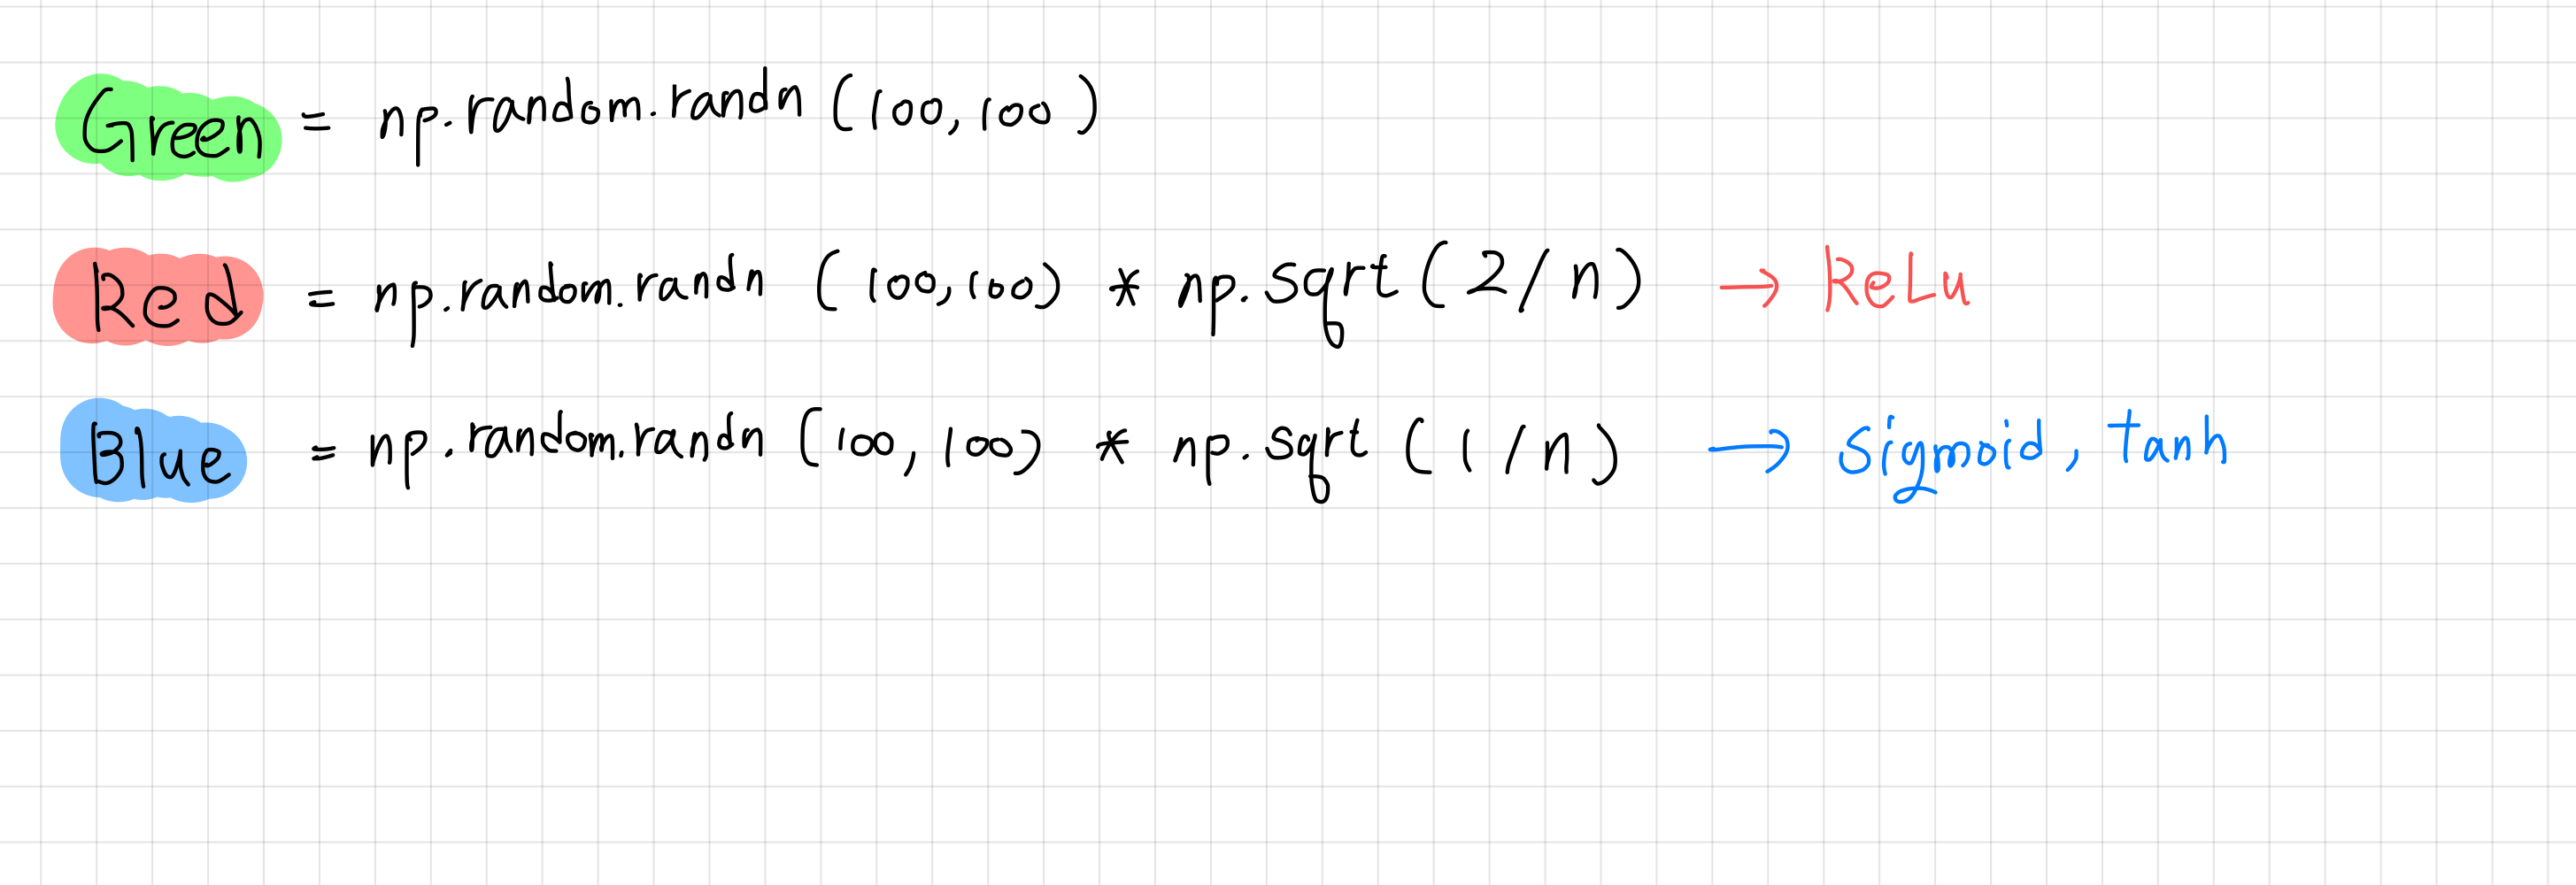 Green = np.random.randn (100,100)
Red = np.random.randn (100,100) * np.sqrt (2/n) → ReLu
Blue = np.random.randn (100,100) * np.sqrt (1/n) → Sigmoid, tanh